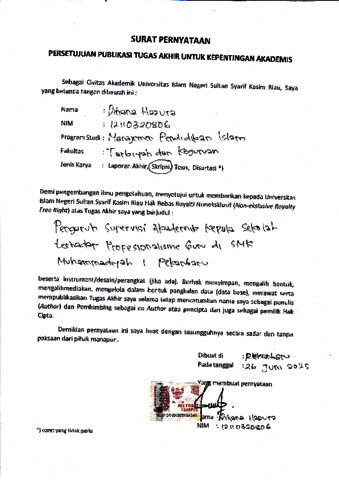 SURAT PERNYATAAN
PERSETUJUAN PUBLIKASI TUGAS AKHIR UNTUK KEPENTINGAN AKADEMIS
Sebagai Civitas Akademik Universitas Islam Negeri Sultan Syarif Kasim Riau, Saya
yang bertanda tangan dibawah ini :
Nama :
NIM : 12110320806
Program Studi : Manajemen Pendidikan Islam
Fakultas : Tarbiyah dan Keguruan
Jenis Karya : Laporan Akhir, Skripsi, Tesis, Disertasi *)
Demi pengembangan ilmu pengetahuan, menyetujui untuk memberikan kepada Universitas
Islam Negeri Sultan Syarif Kasim Riau Hak Bebas Royalti Noneksklusif (Non-exclusive Royalty
Free Right) atas Tugas Akhir saya yang berjudul :
Pengaruh Supervisi Akademik Kepala Sekolah
terhadap Profesionalisme Guru di SMK
Muhammadiyah 1 Pekanbaru
beserta instrument/desain/perangkat (jika ada). Berhak menyimpan, mengalih bentuk,
mengalihmediakan, mengelola dalam bentuk pangkalan data (data base), merawat serta
mempublikasikan Tugas Akhir saya selama tetap mencantumkan nama saya sebagai penulis
(Author) dan Pembimbing sebagai co Author atau pencipta dan juga sebagai pemilik Hak
Cipta.
Demikian pernyataan ini saya buat dengan sesungguhnya secara sadar dan tanpa
paksaan dari pihak manapun.
Dibuat di : Pekanbaru
Pada tanggal : 26 Juni 2025
Yang membuat pernyataan
NIM : 12110320806
*) coret yang tidak perlu